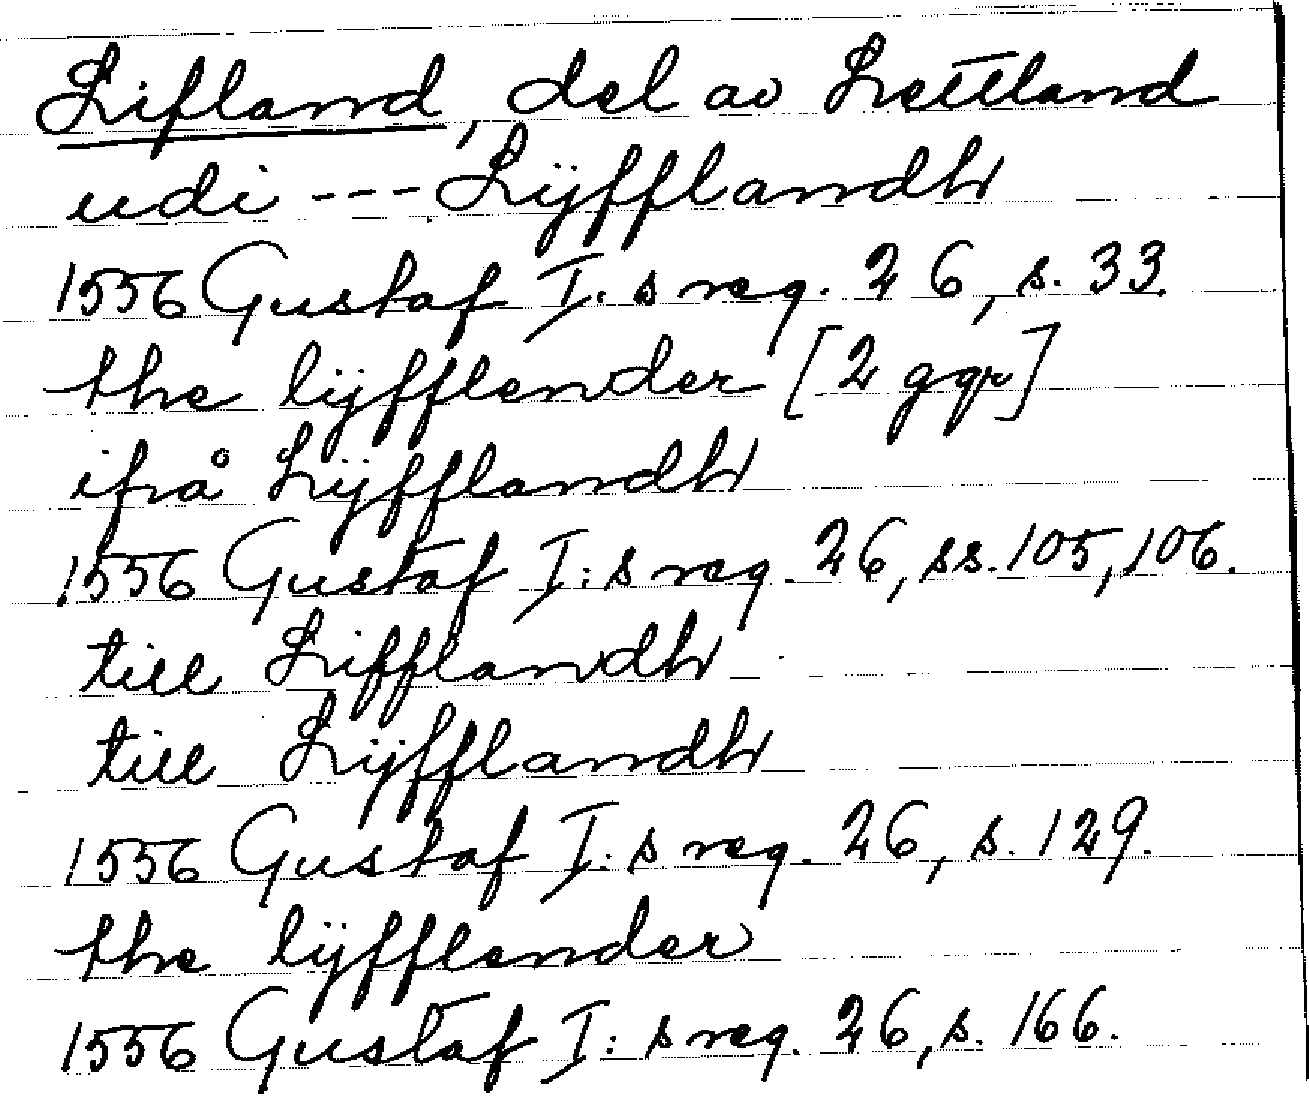 Lifland, del av Lettland
udi --- Lÿfflandh
1556 Gustaf I:s reg. 26, s. 33.
the lÿfflender [2 ggr]
ifrå Lÿfflandh
1556 Gustaf I:s reg. 26, ss. 105, 106.
till Lifflandh
till Lÿfflandh
1556 Gustaf I:s reg. 26, s. 129.
the lÿfflender
1556 Gustaf I:s reg. 26, s. 166.